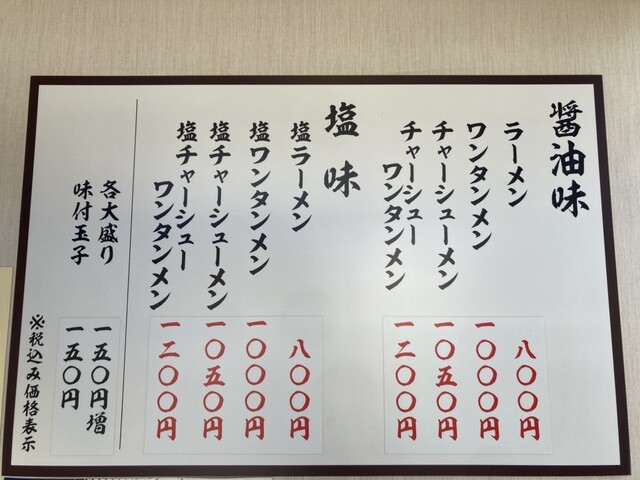 醤油味
ラーメン 八〇〇円
ワンタンメン 一〇〇〇円
チャーシューメン 一〇五〇円
チャーシュー
ワンタンメン 一二〇〇円
塩味
塩ラーメン 八〇〇円
塩ワンタンメン 一〇〇〇円
塩チャーシューメン 一〇五〇円
塩チャーシュー
ワンタンメン 一二〇〇円
各大盛り 一五〇円増
味付玉子 一五〇円
※税込み価格表示